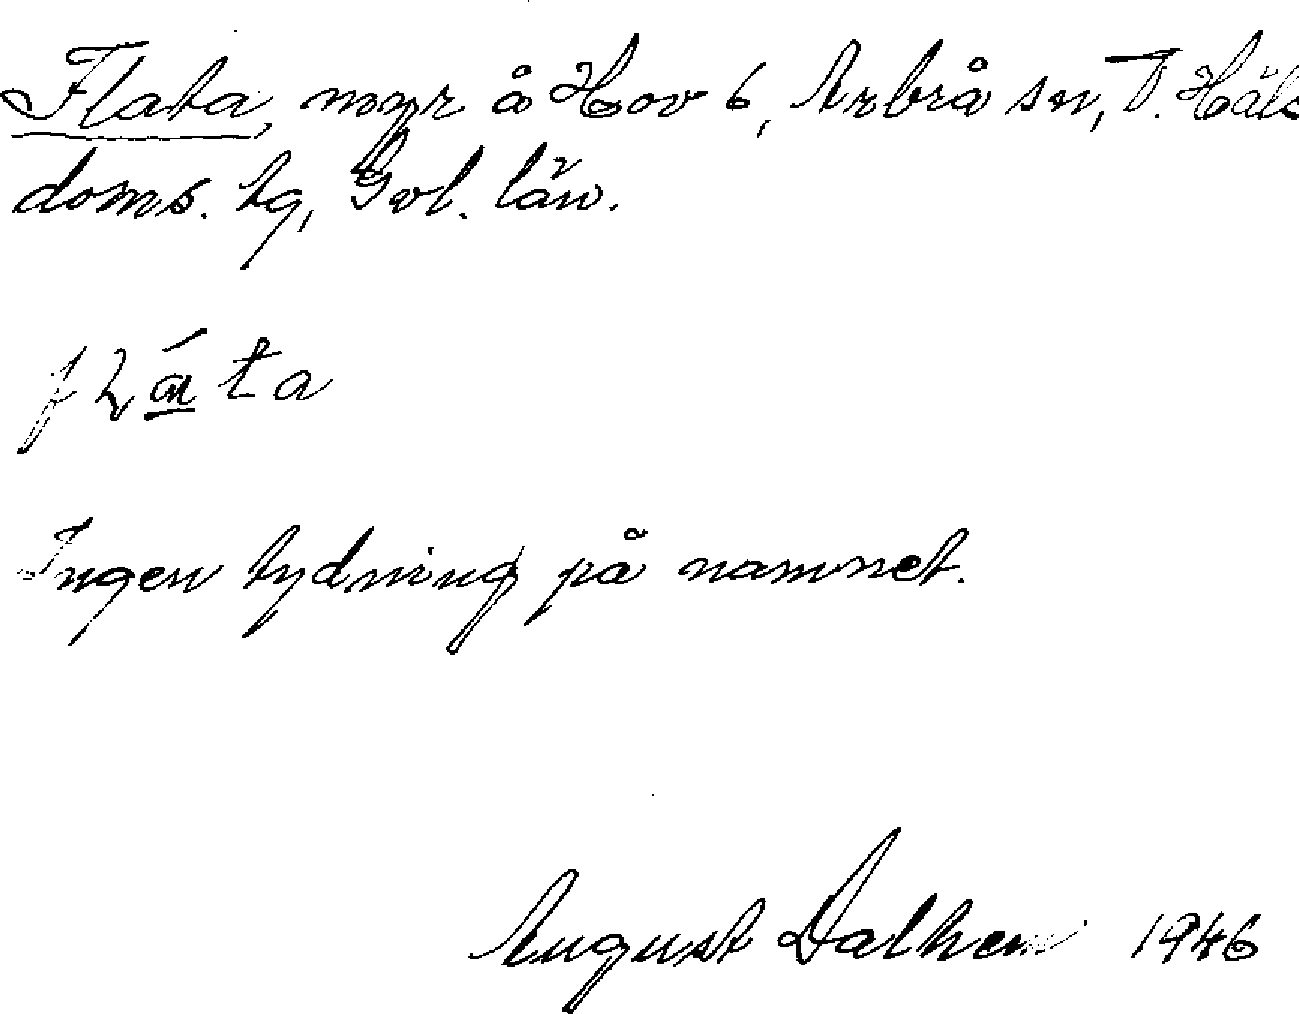 Flata, myr å Hov 6, Arbrå sn, V. Häls
doms. lg, Gvl. län.
fláta
Ingen tydning på namnet.
August Dalhem 1946